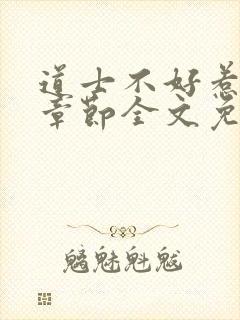 道士不好惹
章节全文免
魑魅魁魃